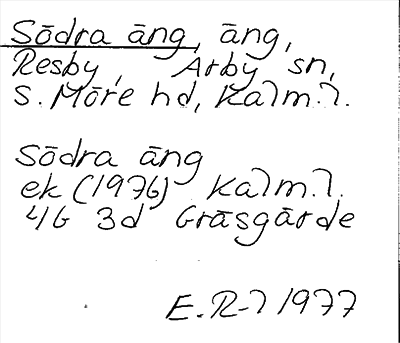 Södra äng, äng,
Resby, Arby sn,
S. Möre hd, Kalm. l.
Södra äng
ek (1976) Kalm. l.
4G 3d Gräsgårde
E. R-l 1977